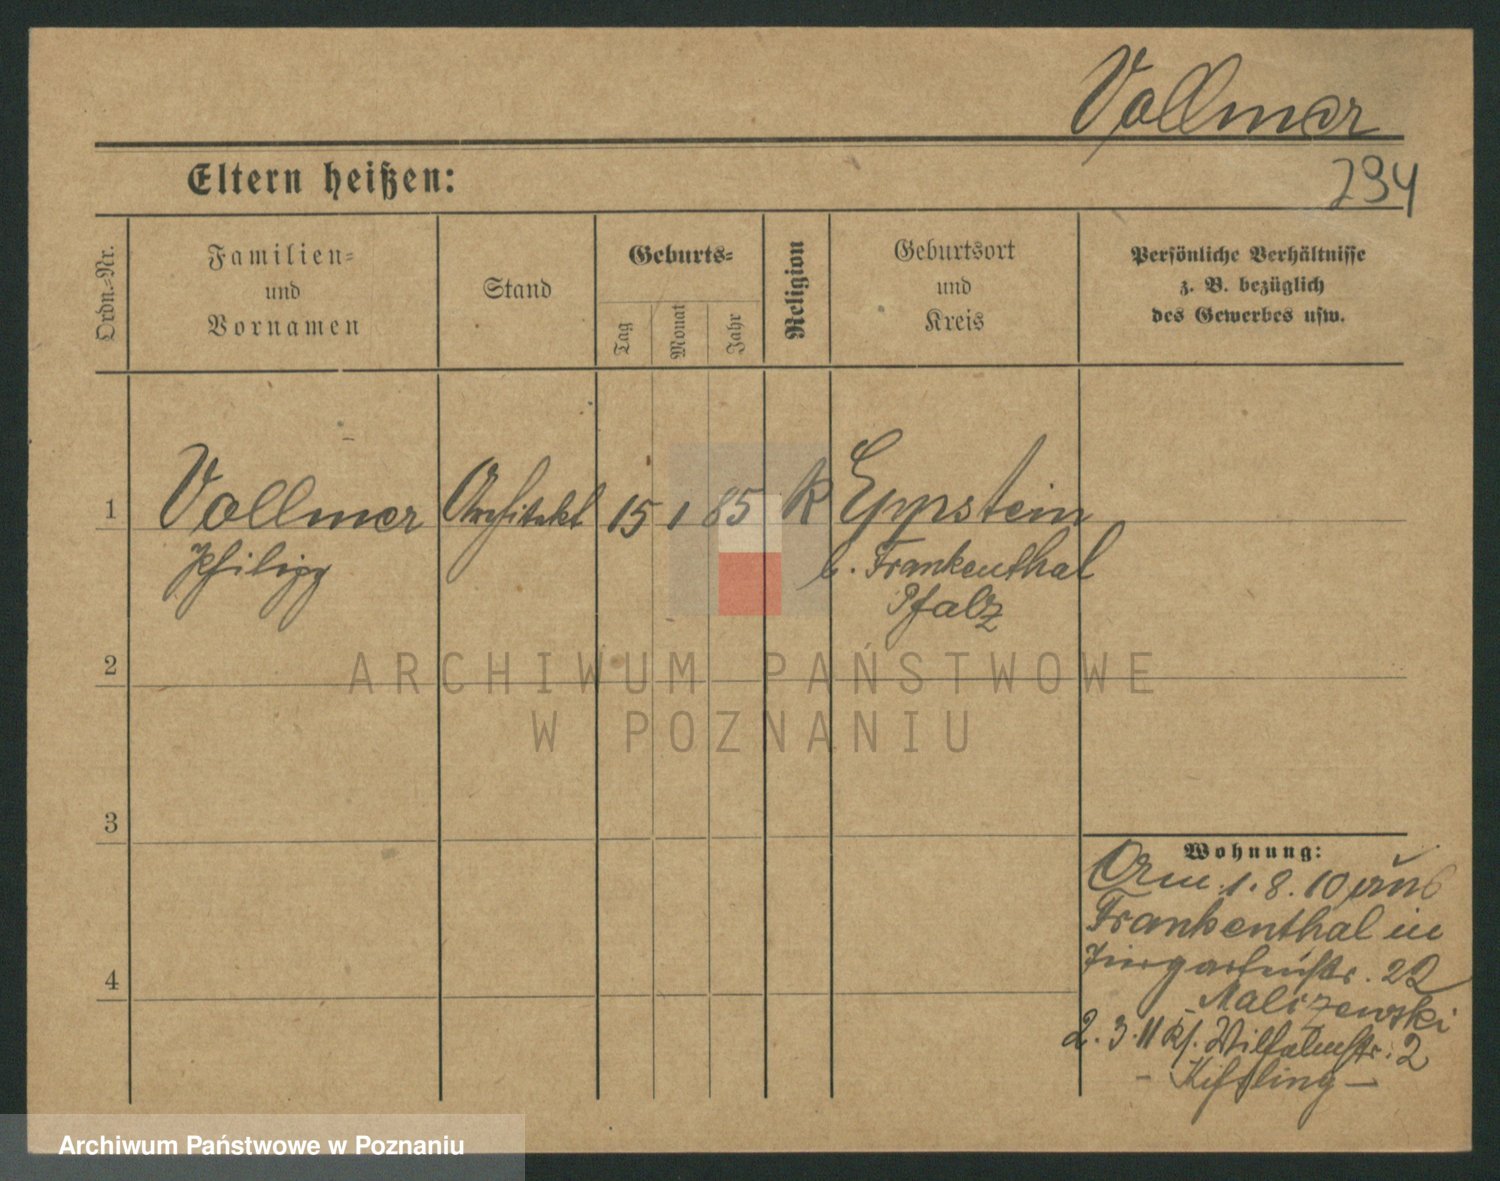 Vollmer
294
Eltern heißen:
Ordn.-Nr.
Familien-
und
Vornamen
Stand
Geburts-
Tag
Monat
Jahr
Religion
Geburtsort
und
Kreis
Persönliche Verhältnisse
z. B. bezüglich
des Gewerbes usw.
1 Vollmer Architekt 15 1 85 K Eppstein
Philipp b. Frankenthal
Pfalz
2
3
4
ARCHIWUM PAŃSTWOWE
W POZNANIU
Wohnung:
1.8.10 aus
Frankenthal in
Tiergartenstr. 22
Maliszewski
2.3.11 Kl. Wilhelmstr. 2
- Kißling -
Archiwum Państwowe w Poznaniu